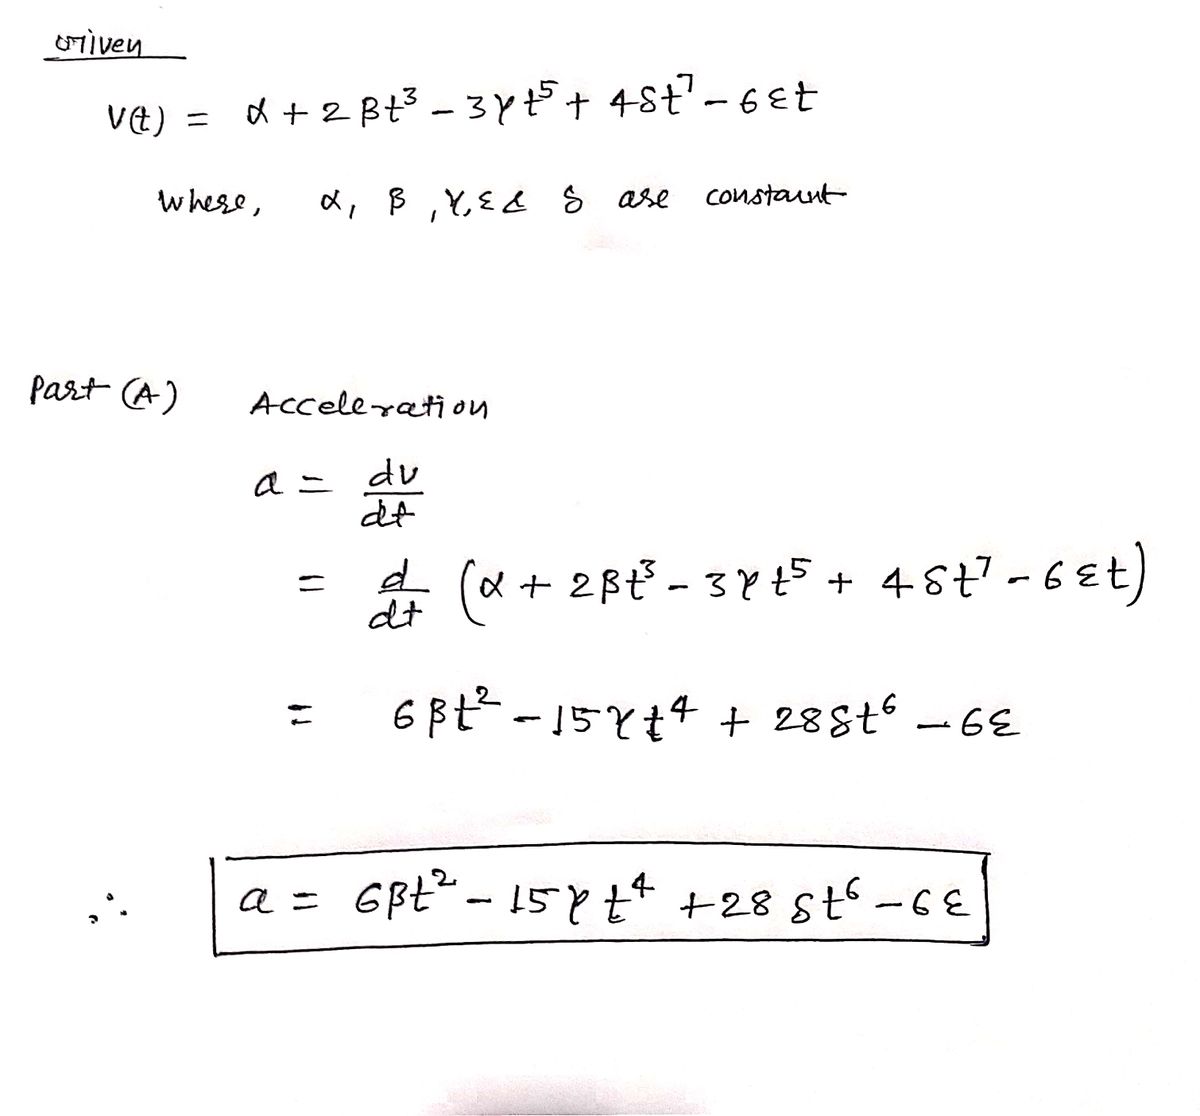 Given
V(t) = α + 2βt³ - 3γt⁵ + 4δt⁷ - 6εt
where, α, β, γ, ε & δ are constaunt
Part (A) Acceleration
a = dv/dt
= d/dt (α + 2βt³ - 3γt⁵ + 4δt⁷ - 6εt)
= 6βt² - 15γt⁴ + 28δt⁶ - 6ε
∴ a = 6βt² - 15γt⁴ + 28δt⁶ - 6ε